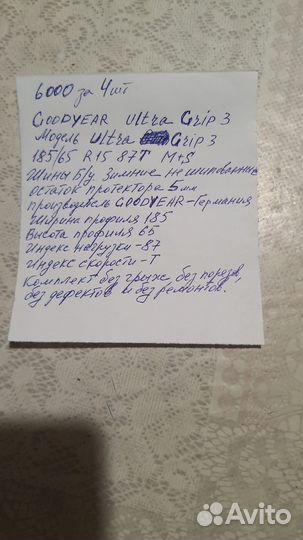 6000 за 4 шт
GOODYEAR Ultra Grip 3
Модель Ultra Grip 3
185/65 R15 87T M+S
Шины б/у. Зимние не шипованные
остаток протектора 5 мм
производитель GOODYEAR-Германия
Ширина профиля 185
Высота профиля 65
Индекс нагрузки -87
Индекс скорости -Т
Комплект без грыж, без порезов,
без дефектов и без ремонтов.
Avito